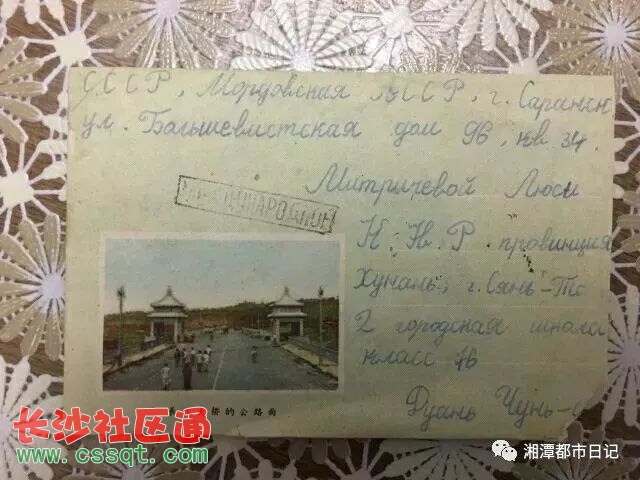 СССР, Мордовская АССР, г. Саранск
ул. Большевистская дом 96, кв. 34.
Митричевой Люси
МЕЖДУНАРОДНОЕ
К.Н.Р. провинция
Хунань, г. Сянь-Та
2 городская школа
класс 76
Дуань Чунь-
桥的公路面
长沙社区通
www.cssqt.com
湘潭都市日记